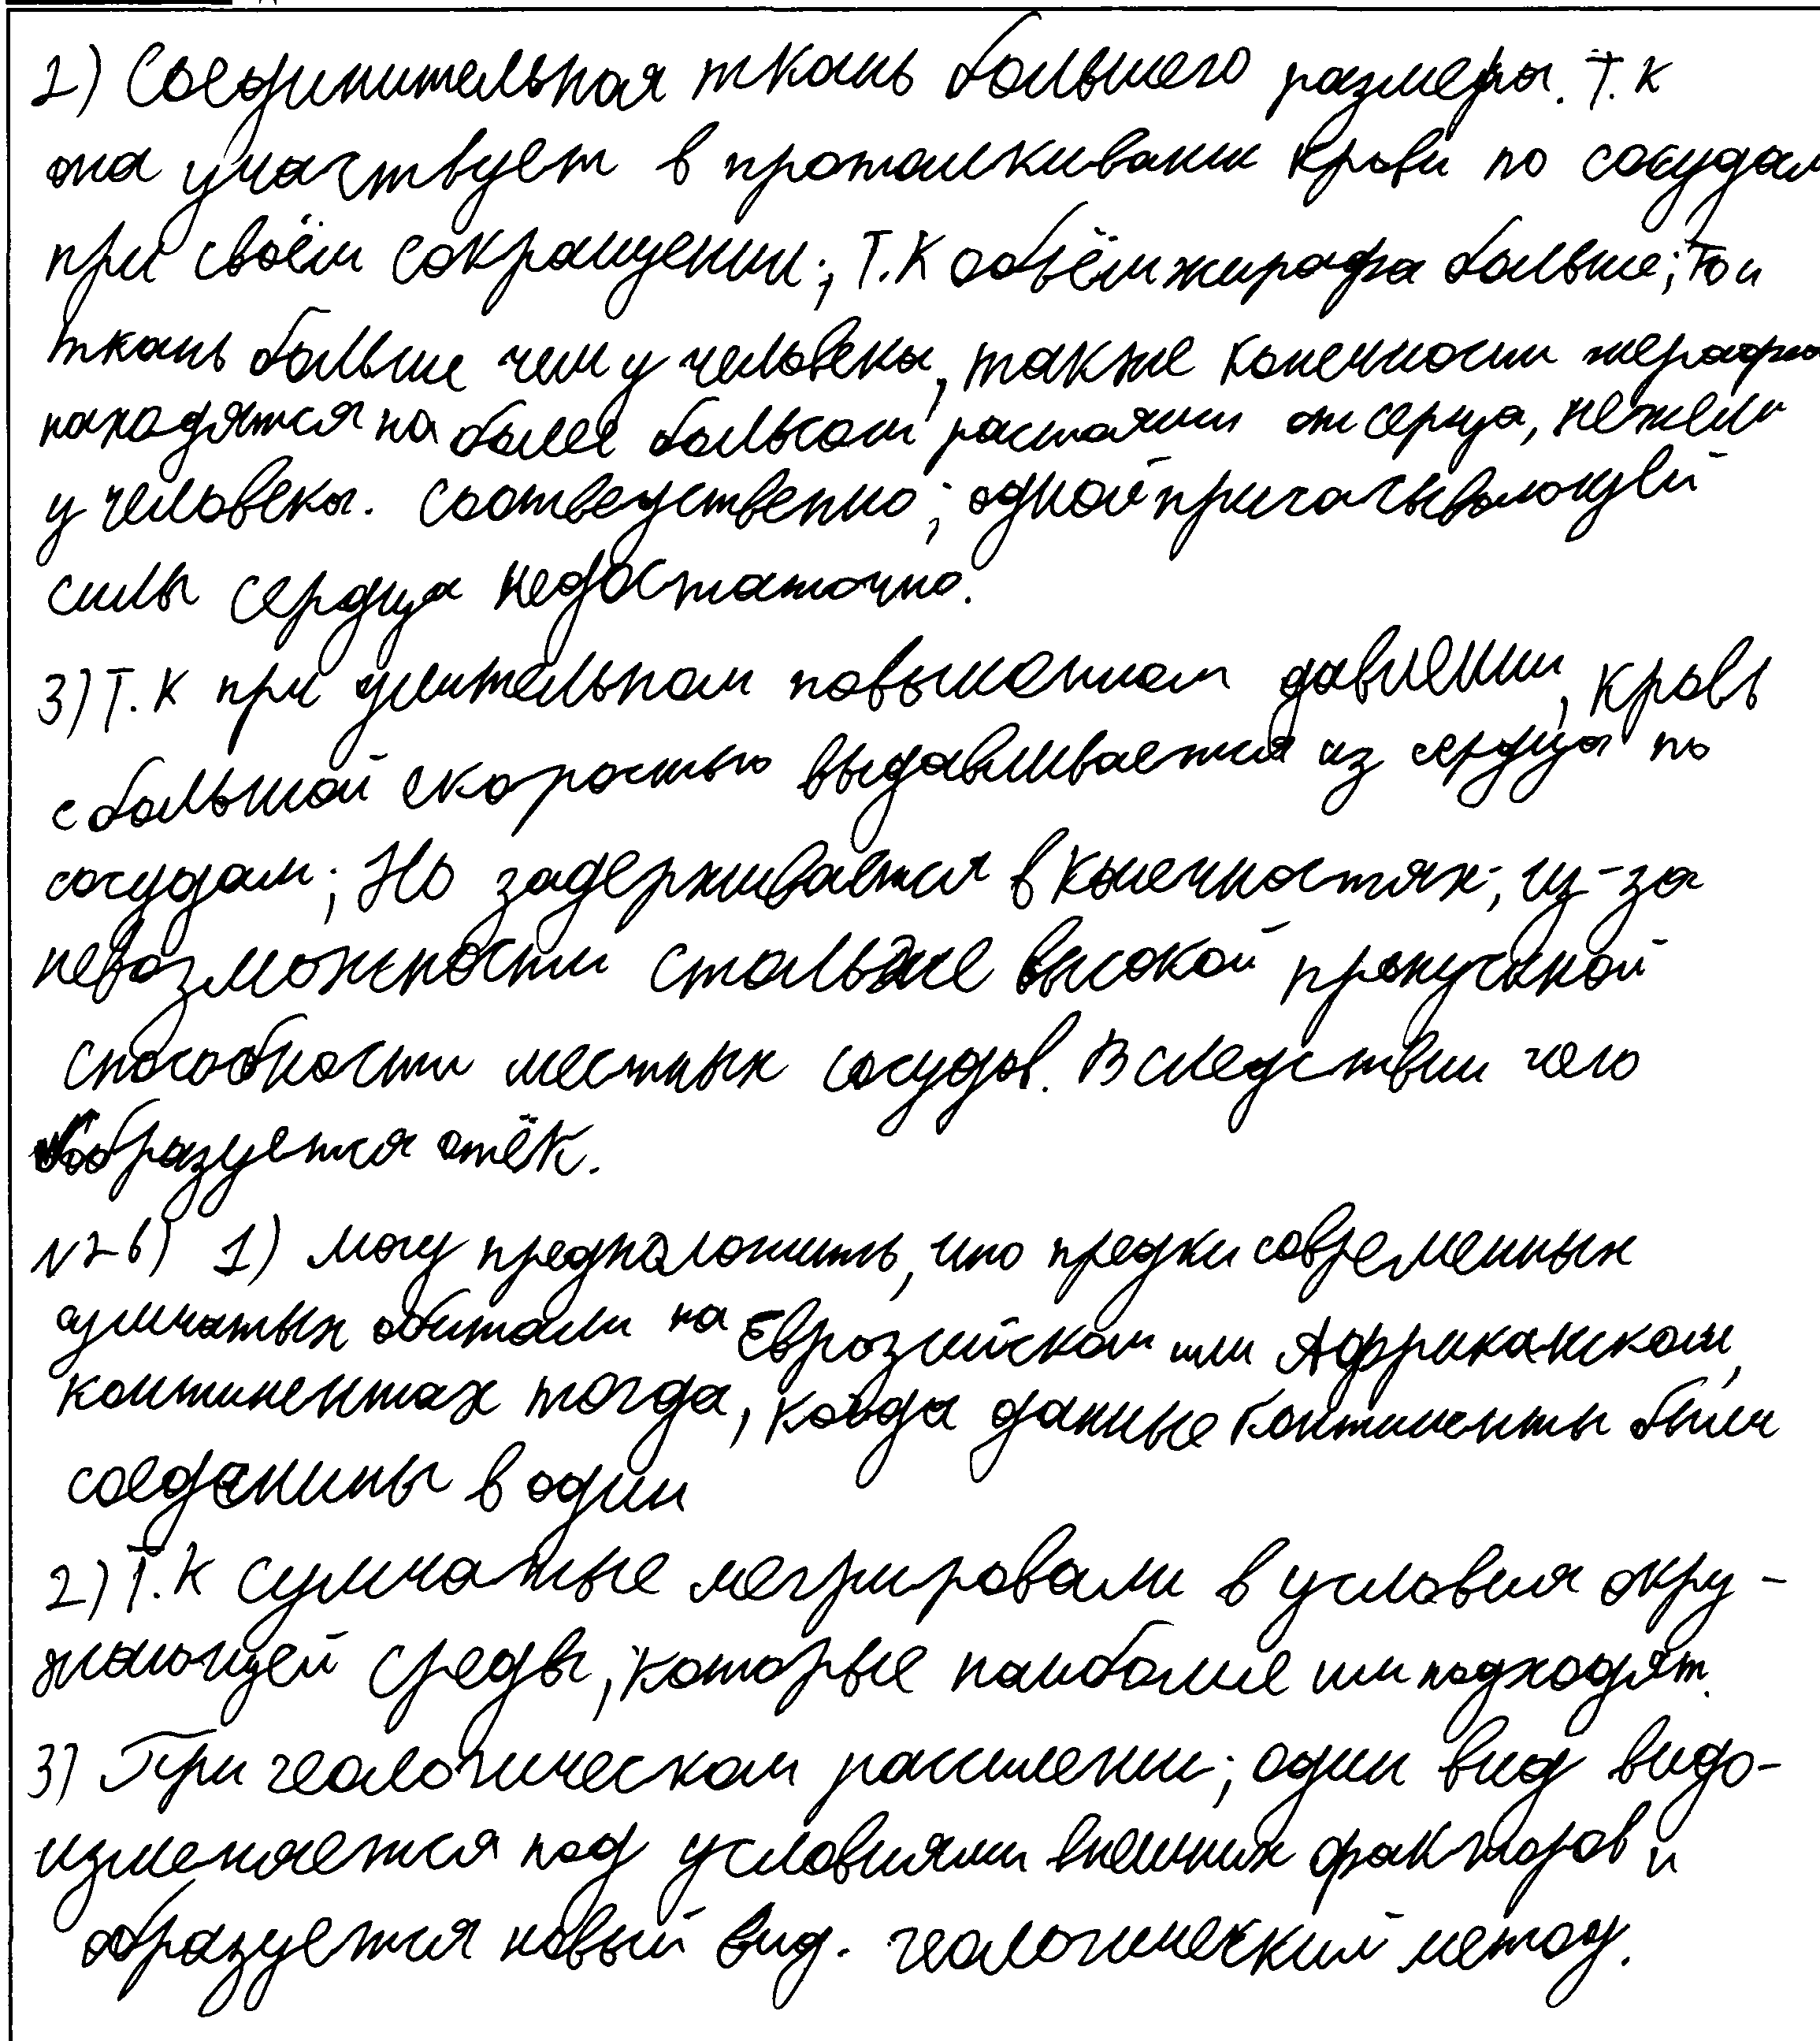 2) Соединительная ткань большего размеры. Т.к
она участвует в проталкивании крови по сосудам
при своём сокращении; т.к объём жирафа больше; то и
ткань больше чем у человека, также конечности жерафа
находятся на более большом растоянии от серца, нежели
у человека. Соответственно; одной
силы сердца недостаточно.
3) Т.к при длительном повышенном давлении, кровь
с большой скоростью выдавливается из сердца по
сосудам; Но задерживается в конечностях; из-за
невозможности столь же высокой пропускной
способности местных сосудов. В следствии чего
образуется отёк.
№26) 1) Могу предположить, что предки современных
сумчатых обитали на Евразийском или Африканском,
континентах тогда, когда данные континенты были
соеденины в один
2) Т.к сумчатые мегрировали в условия окру-
жающей среды, которые наиболее им подходят.
3) При геологическом расселении; один вид видо-
изменяется под условиями внешних факторов и
образуется новый вид. геологический метод.